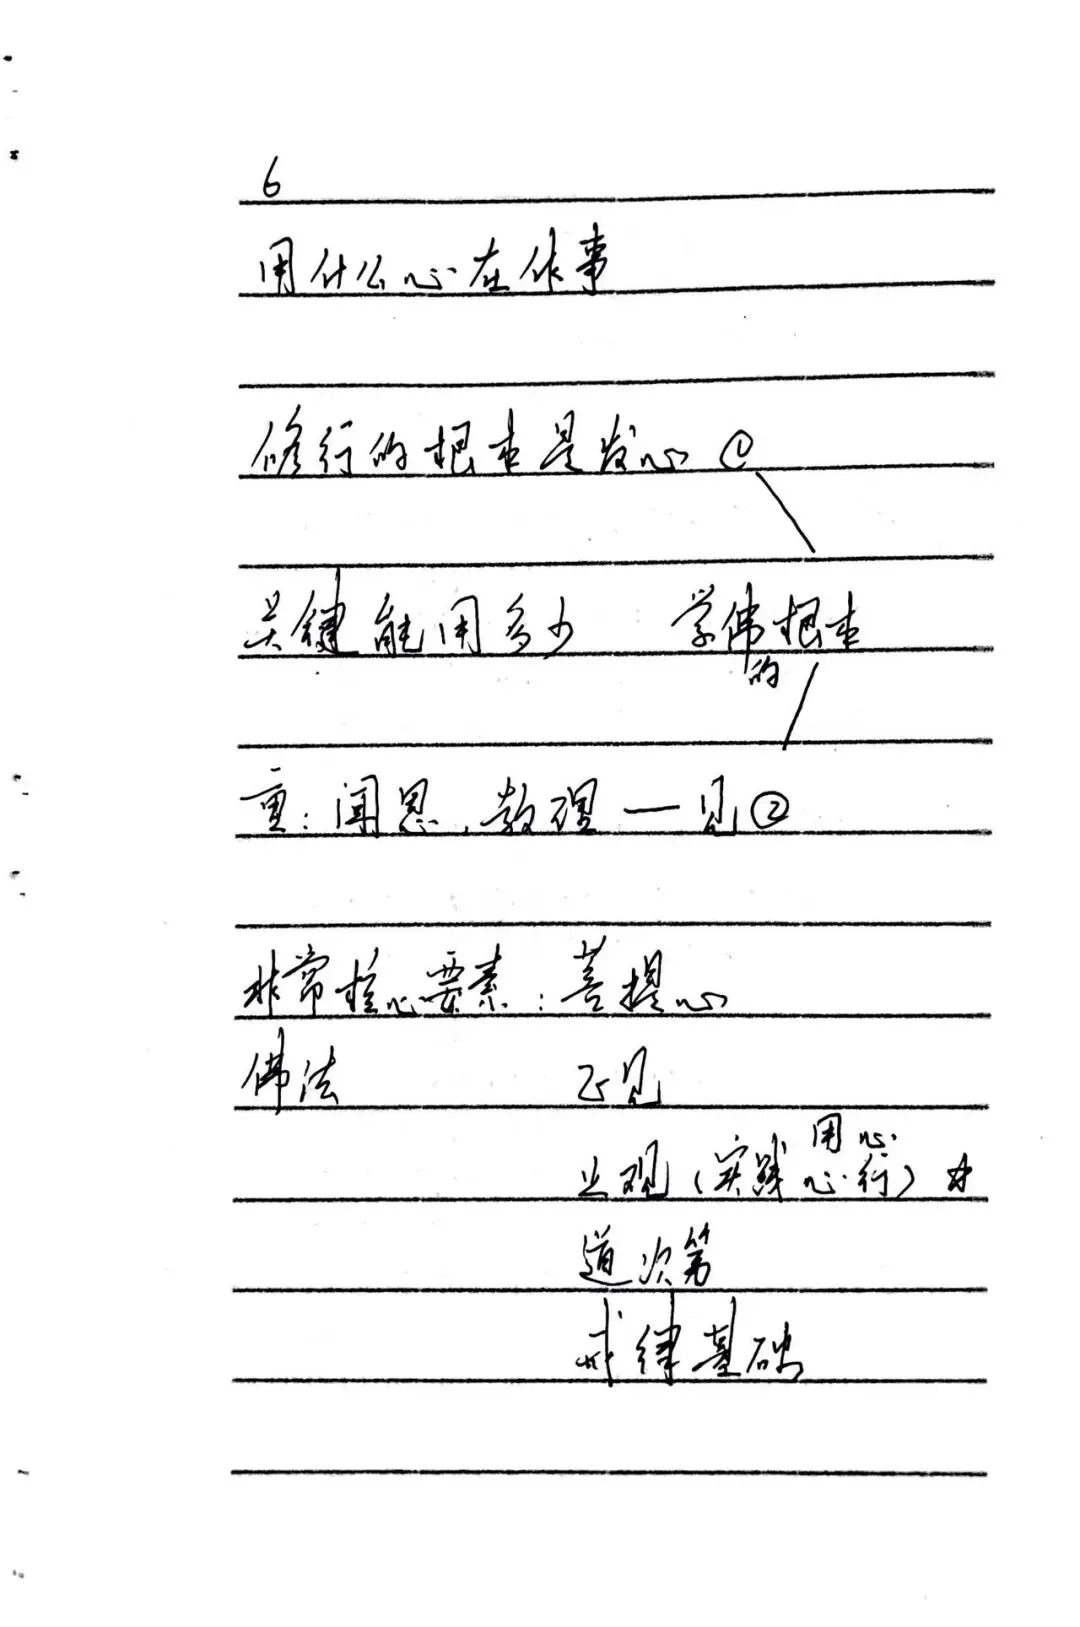 6
用什么心在作事
修行的根本是发心①
关键能用多少 学佛的根本
重：闻思、教理一见②
非常核心要素：菩提心
佛法 正见
用心
止观（实践心行）☆
道次第
戒律基础